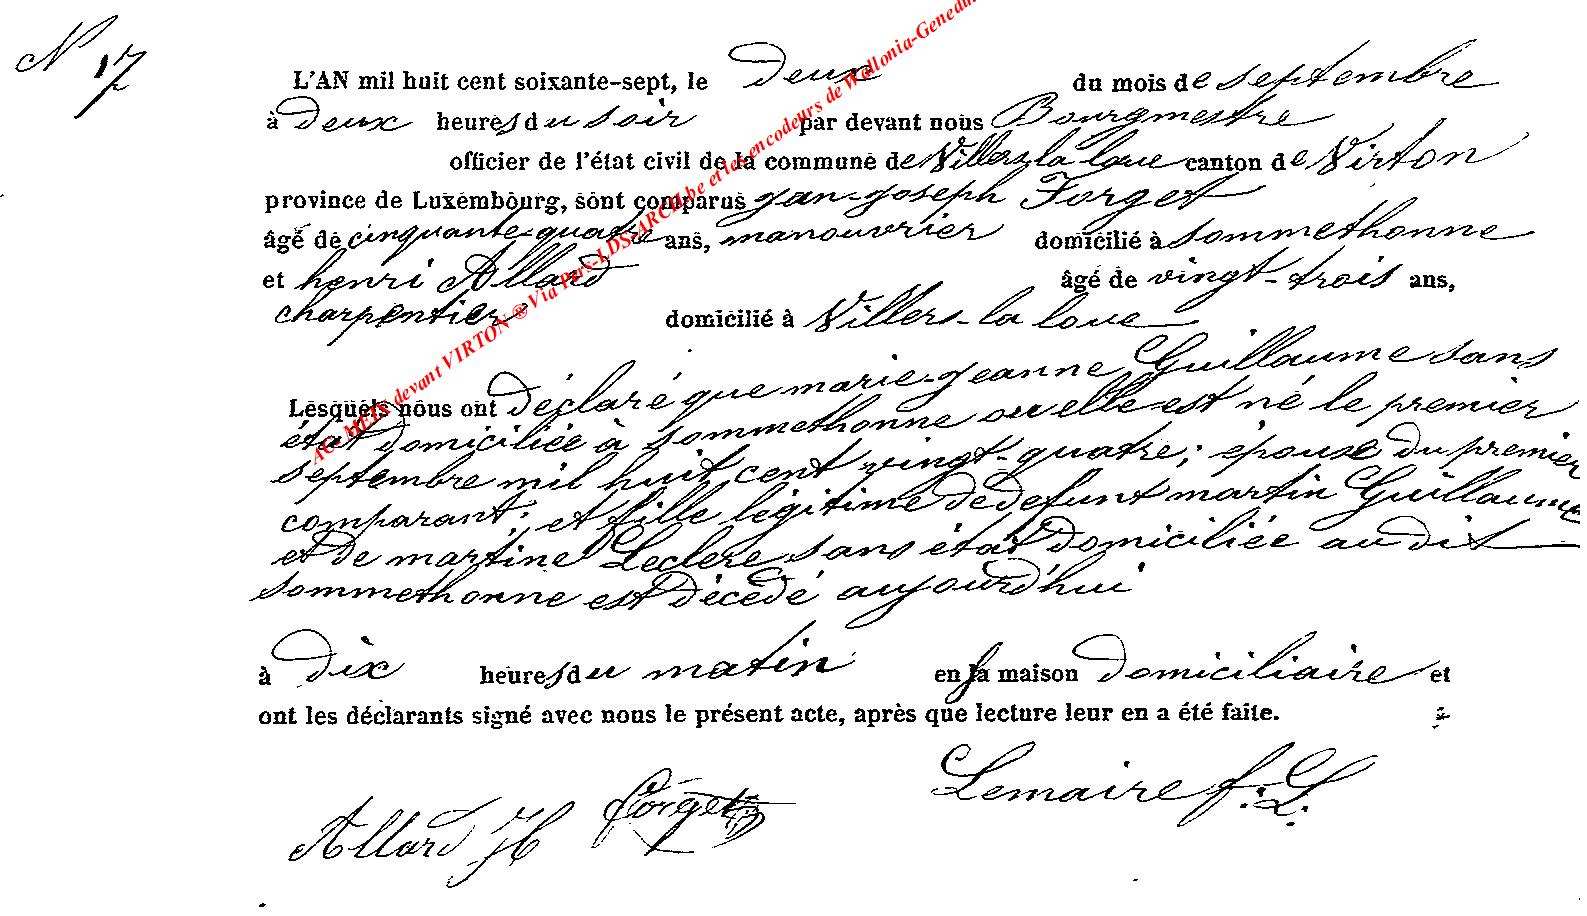 N 17
L'AN mil huit cent soixante-sept, le deux du mois de septembre
à deux heures du soir par devant nous Bourgmestre
officier de l'état civil de la commune de Villers-la loue canton de Virton
province de Luxembourg, sont comparus jean-joseph Forget
âgé de cinquante-quatre ans, manouvrier domicilié à sommethonne
et henri Allard âgé de vingt-trois ans,
charpentier domicilié à Villers-la loue
Lesquels nous ont déclaré que marie-jeanne Guillaume sans
état domiciliée à sommethonne ou elle est né le premier
septembre mil huit cent vingt-quatre; épouse du premier
comparant; et fille légitime de defunt martin Guillaume
et de martine Leclere sans état domiciliée au dit
sommethonne est décédé aujourd'hui
à dix heures du matin en sa maison domiciliaire et
ont les déclarants signé avec nous le présent acte, après que lecture leur en a été faite.
Allard H Forget Lemaire f. L.
devant VIRTON ® Via Pars-LDS-ARCH.be et les encodeurs de Wallonia-Genedata